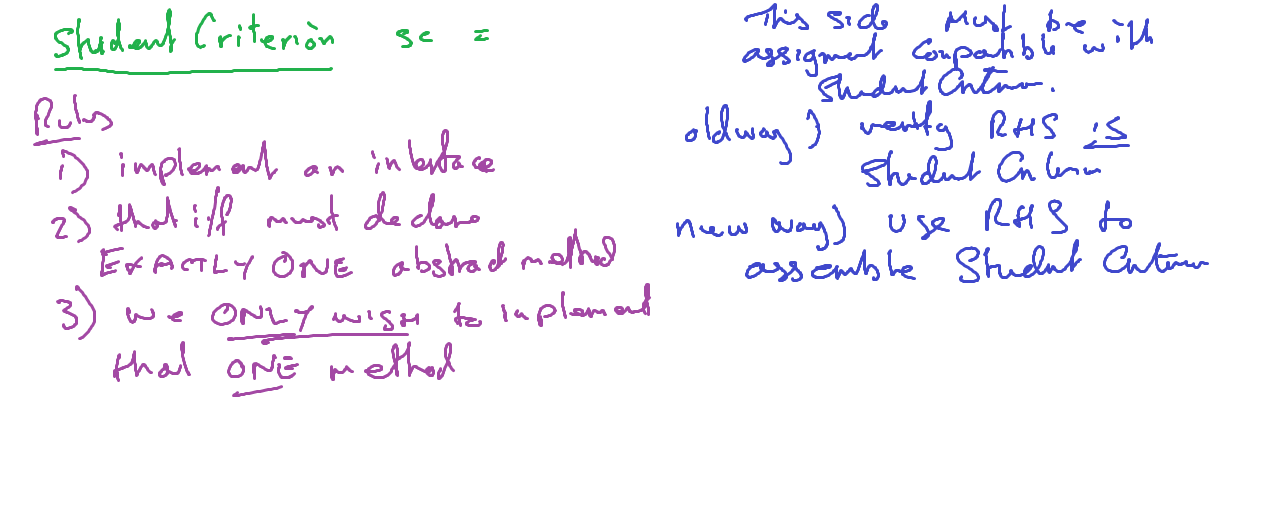 Student Criterion sc =
Rules
1) implement an interface
2) that i/f must declare
EXACTLY ONE abstract method
3) we ONLY WISH to implement
that ONE method
This side must be
assigment compatible with
Student Criterion.
old way) verify RHS is
Student Criterion
new way) use RHS to
assemble Student Criterion